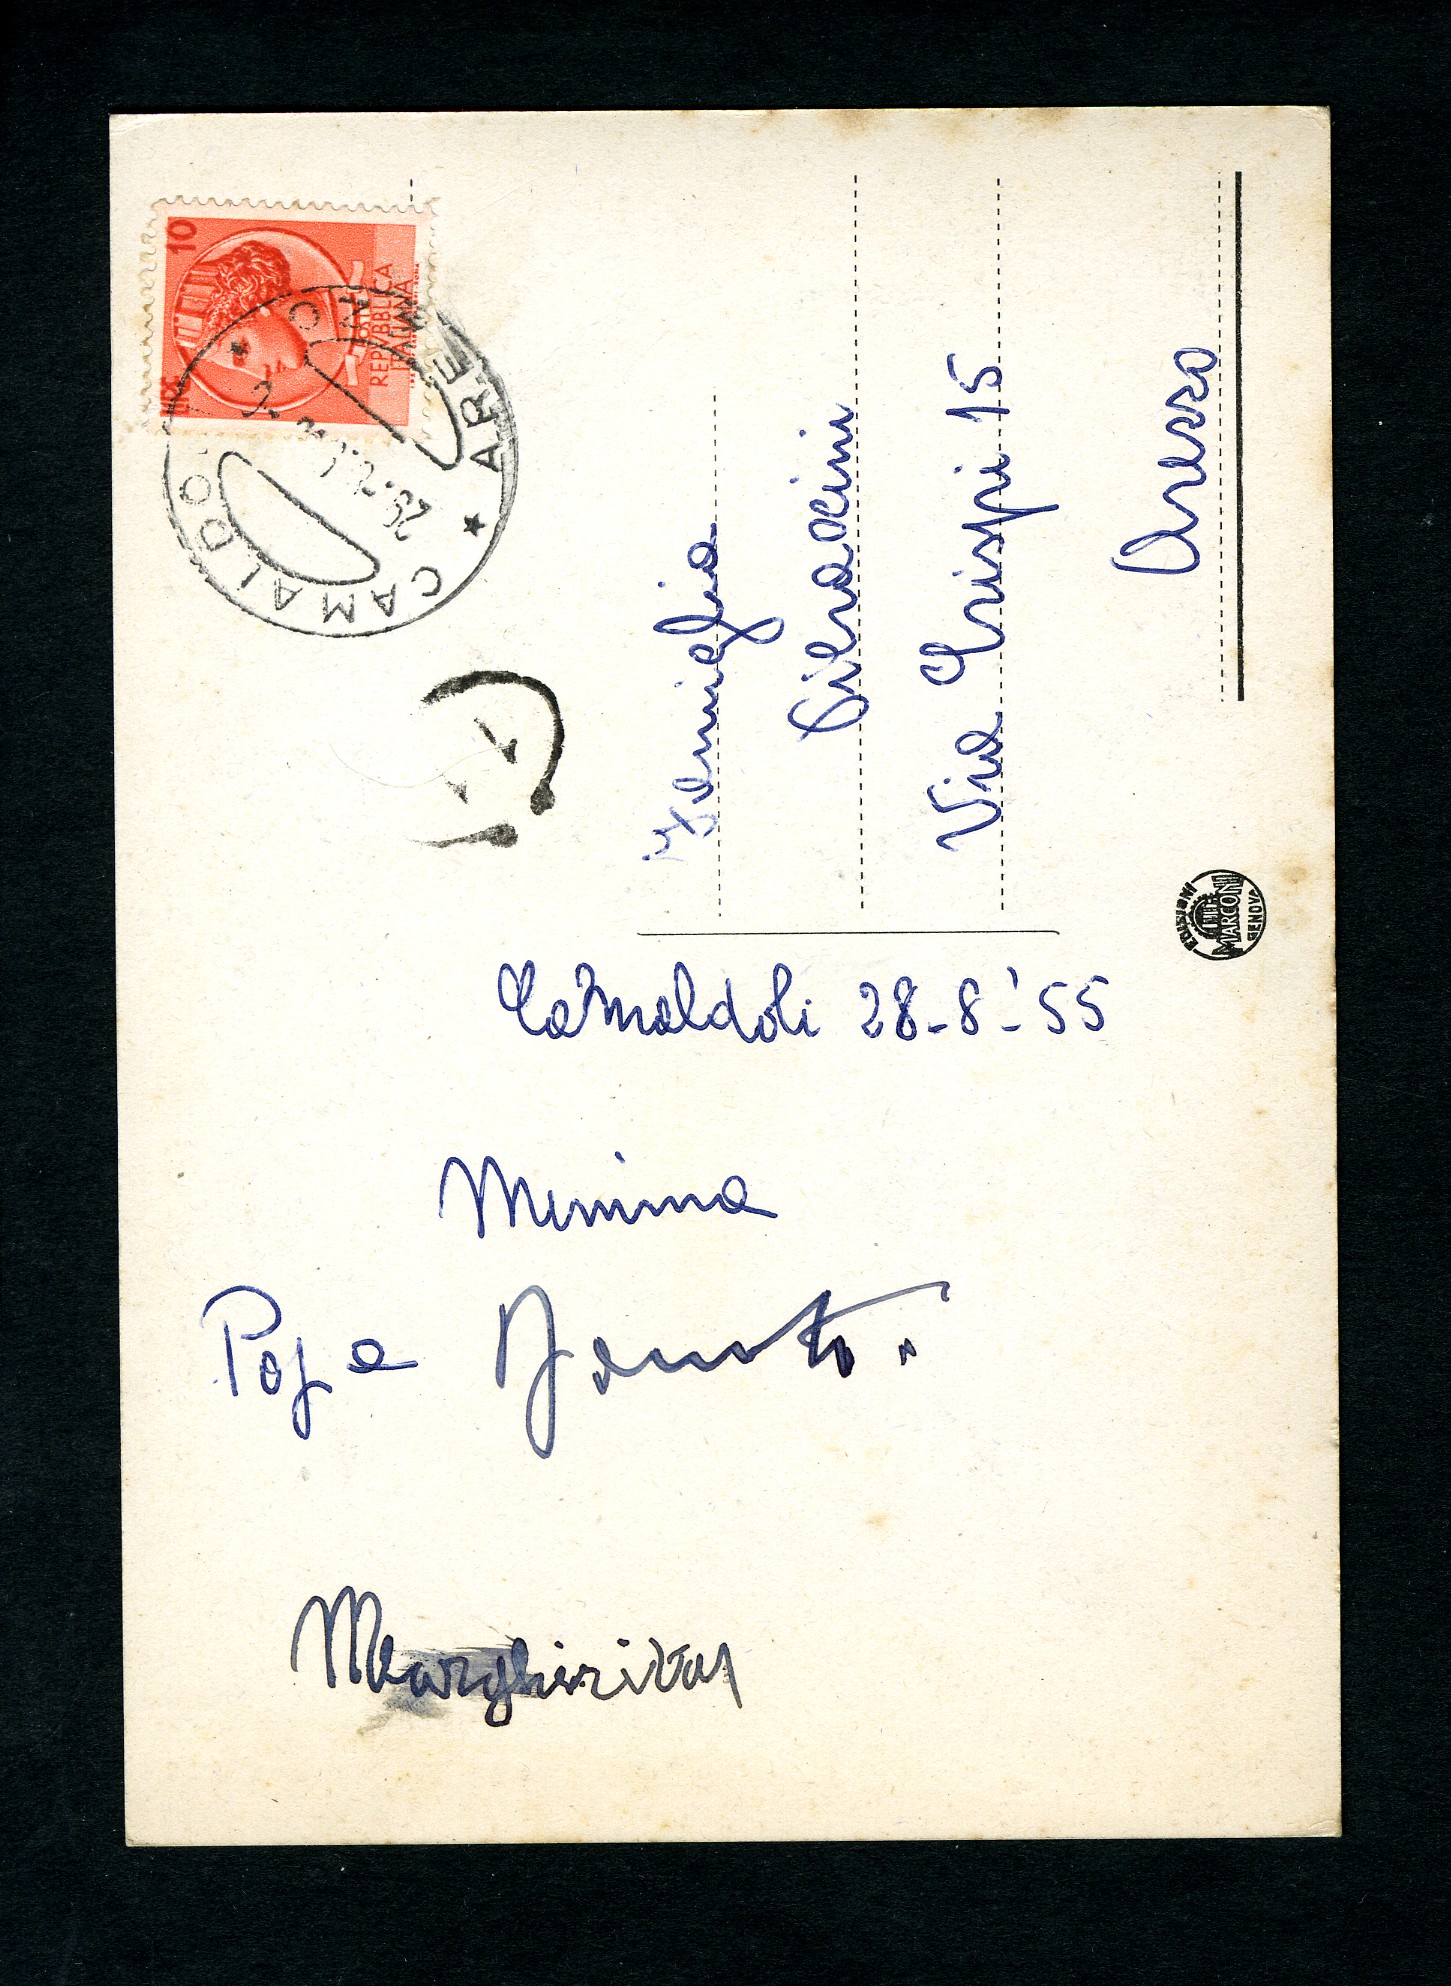 LIRE 10
REPVBBLICA
ITALIANA
CAMALDOLI * AREZZO *
28.8.
1
Famiglia
Via Crispi 15
Arezzo
EDIZIONI
MARCONI
GENOVA
Camaldoli 28-8-'55
Mimma
Donato
Margherita